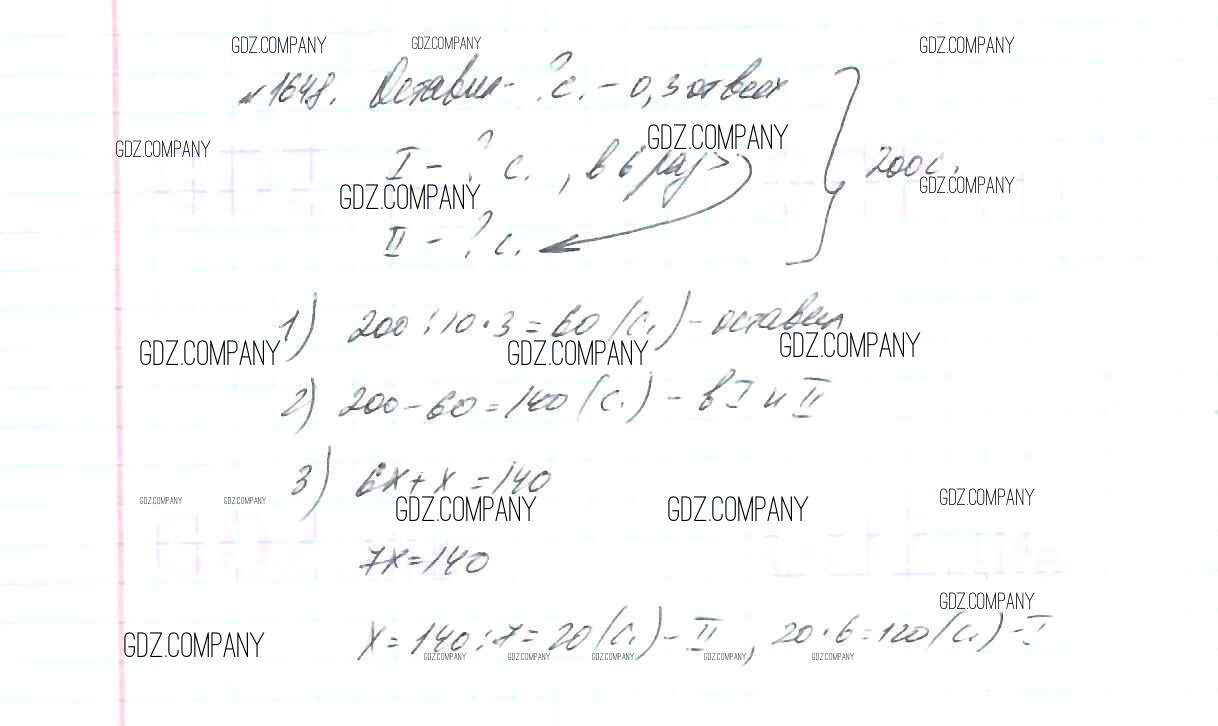 GDZ.COMPANY GDZ.COMPANY GDZ.COMPANY
№1648. Оставил - ? с. - 0,3 от всех
GDZ.COMPANY GDZ.COMPANY
I - ? с., в 6 раз > 200 с.
GDZ.COMPANY GDZ.COMPANY
II - ? с.
1) 200 : 10 · 3 = 60 (с.) - оставил
GDZ.COMPANY GDZ.COMPANY GDZ.COMPANY
2) 200 - 60 = 140 (с.) - в I и II
3) 6x + x = 140
GDZ.COMPANY GDZ.COMPANY GDZ.COMPANY GDZ.COMPANY GDZ.COMPANY
7x = 140
GDZ.COMPANY
x = 140 : 7 = 20 (с.) - II, 20 · 6 = 120 (с.) - I
GDZ.COMPANY GDZ.COMPANY GDZ.COMPANY GDZ.COMPANY GDZ.COMPANY GDZ.COMPANY